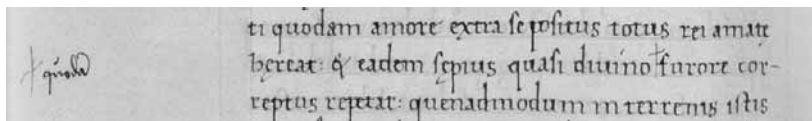 ti quodam amore extra se positus totus rei amatę
hęreat: & eadem sępius quasi diuino †furore cor-
†quodã
reptus repetat: quenadmodum in terrenis istis